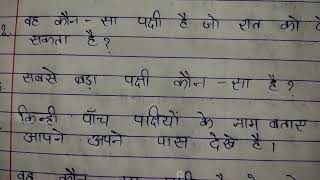 2. वह कौन - सा पक्षी है जो रात को
सकता है?
सबसे बड़ा पक्षी कौन - सा है?
किन्ही पाँच पक्षियों के नाम बताए
आपने अपने पास देखे है।
वह कौन